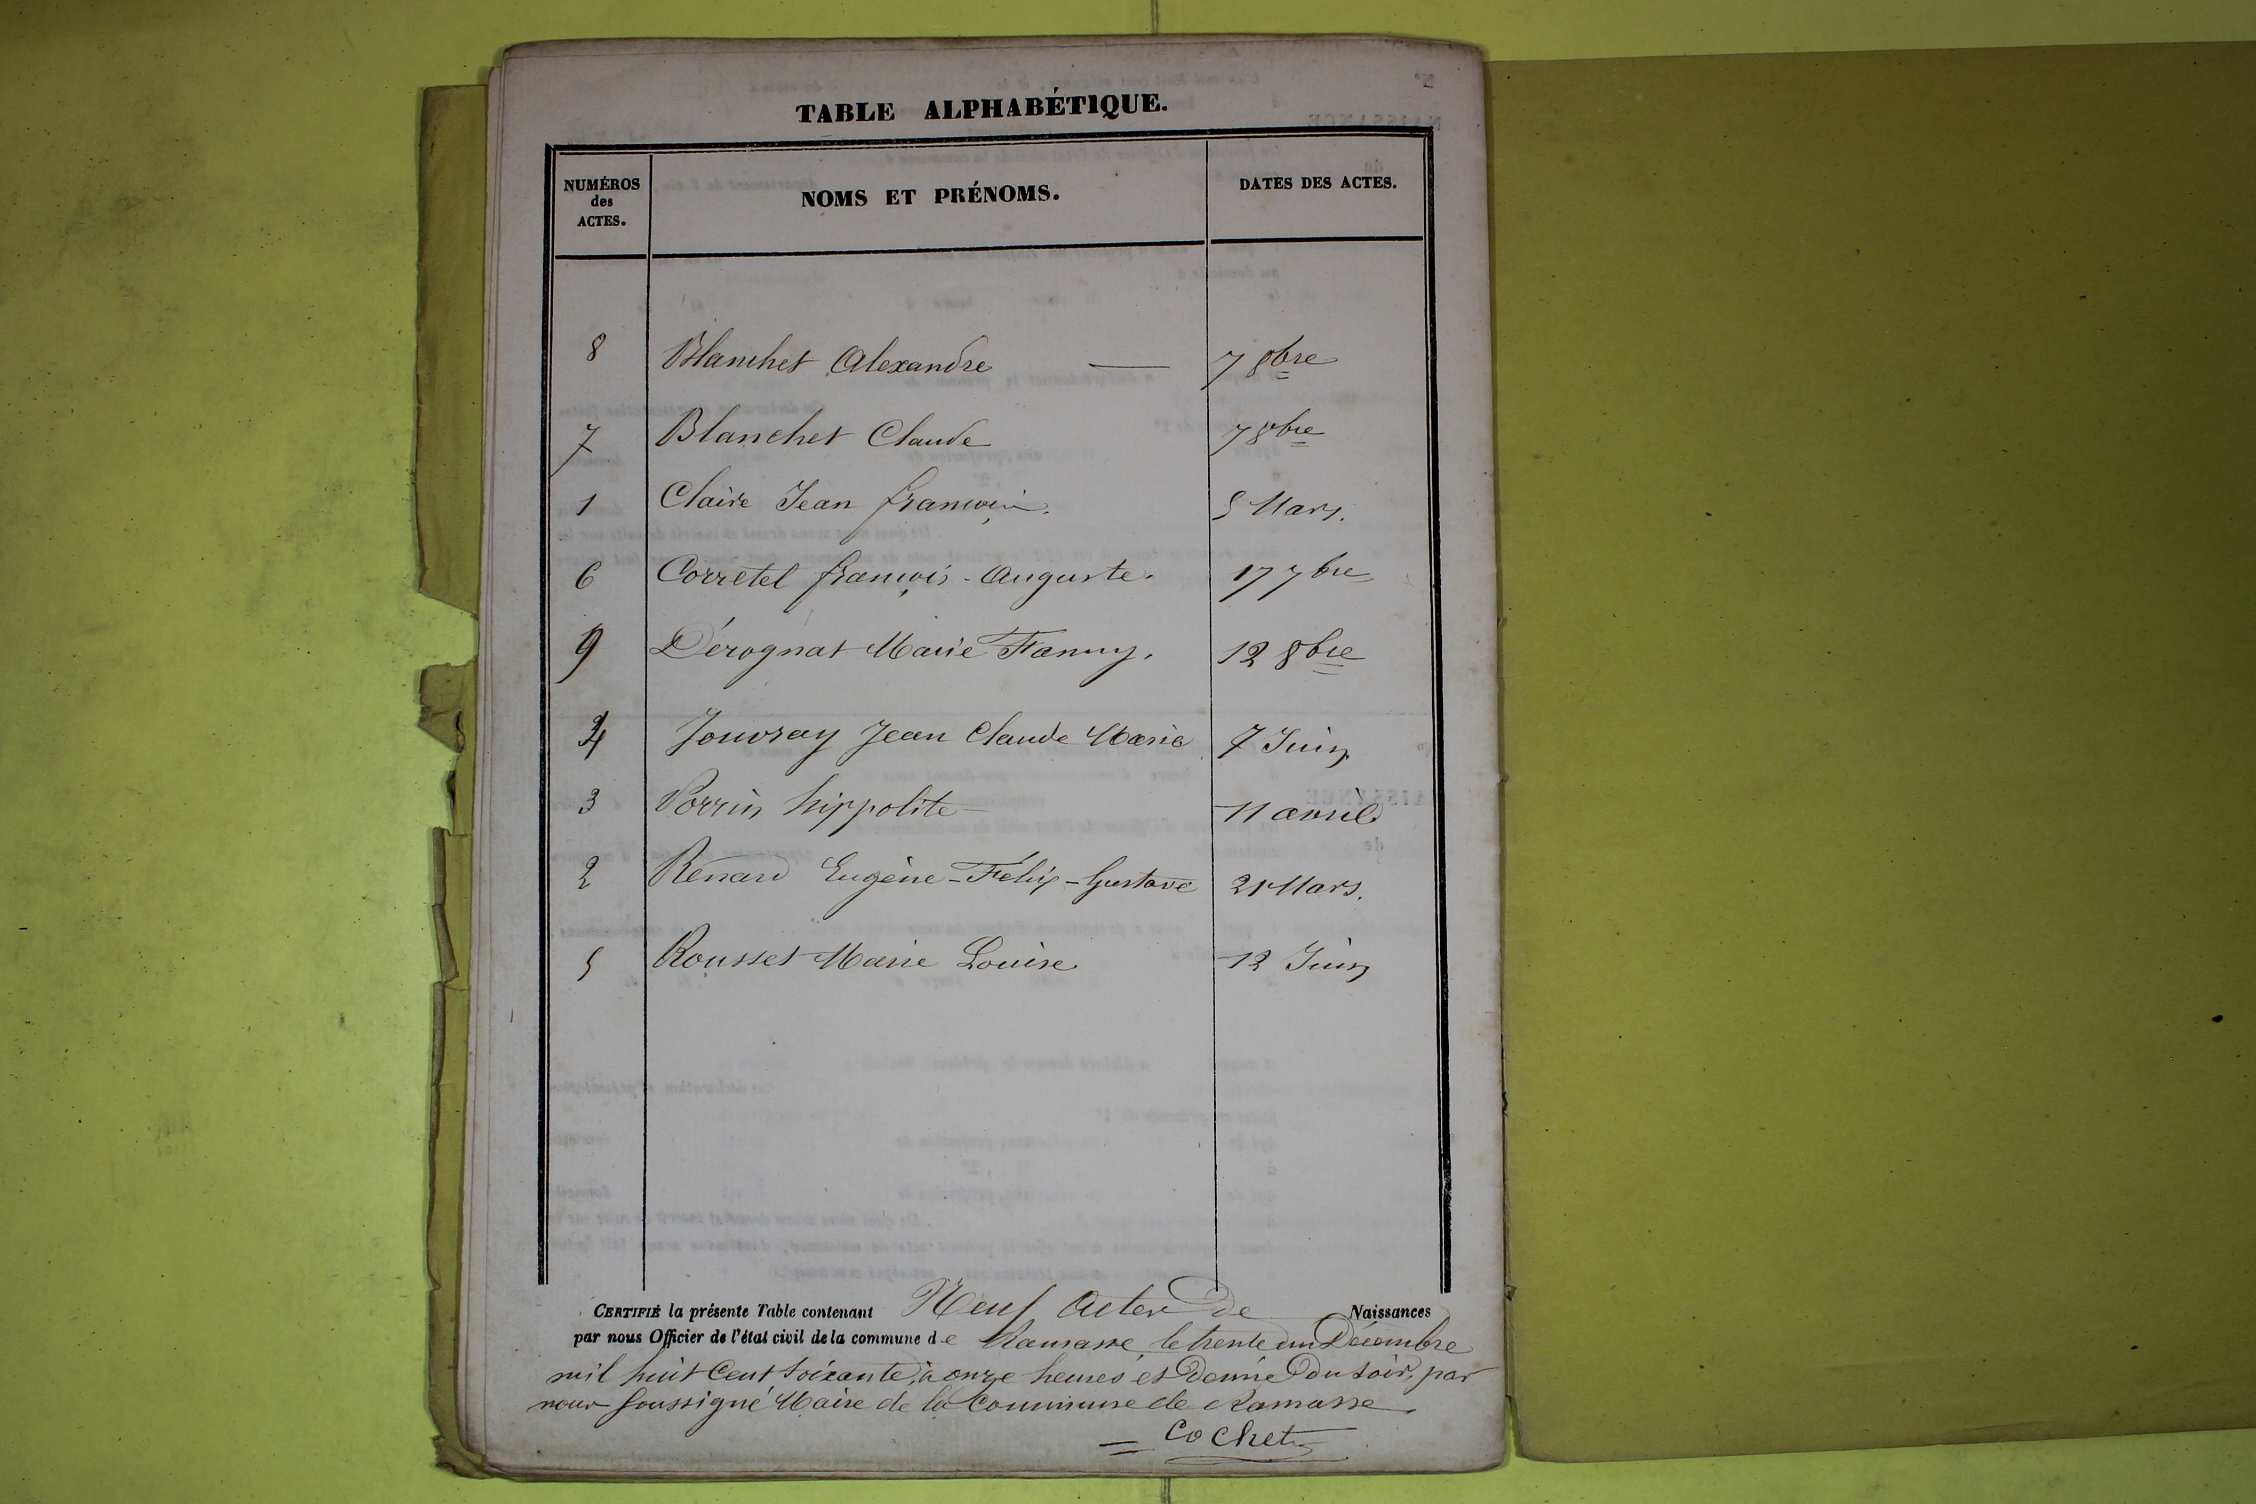 TABLE ALPHABÉTIQUE.
NUMÉROS des ACTES. NOMS ET PRÉNOMS. DATES DES ACTES.
8 Blanchet Alexandre — 7 8bre
7 Blanchet Claude 7 8bre
1 Claire Jean françois. 5 Mars.
6 Corretel françois - Auguste. 17 7bre
9 Dérognat Marie Fanny. 12 8bre
4 Jouvray Jean Claude Marie 7 Juin
3 Porrin hippolite 11 avril
2 Renard Eugène - Félix - Gustave 21 Mars.
5 Rousset Marie Louise 12 Juin
CERTIFIÉ la présente Table contenant Neuf Actes de Naissances
par nous Officier de l'état civil de la commune de Ramasse, le trente un Décembre
mil huit Cent Soixante, à onze heures et Demie Du Soir, par
nous Soussigné Maire de la Commune de Ramasse.
Cochet